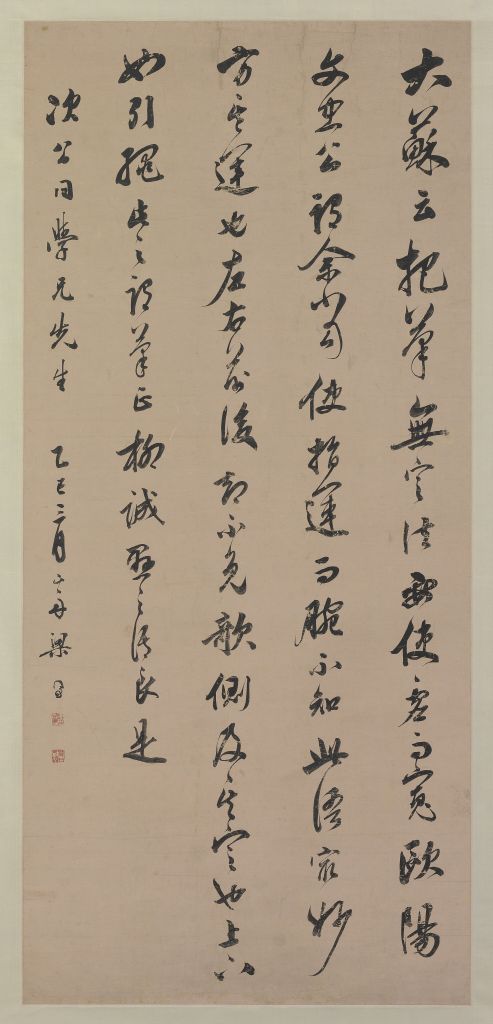 大蘇云把筆無定法要使虛而寬歐陽
文忠公謂余當使指運而腕不知此語最妙
方其運也左右前後却不免欹側及其定也上下
如引繩此之謂筆正柳誠懸之語良是
次公同學兄先生 乙巳三月山舟梁同書